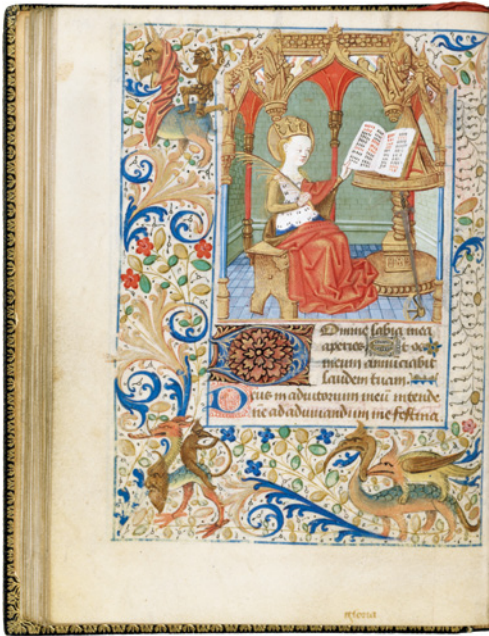 Domine labia mea
aperies et os
meum annunciabit
laudem tuam
Deus in adiutorium meū intende
ne ad adiuvandum me festina